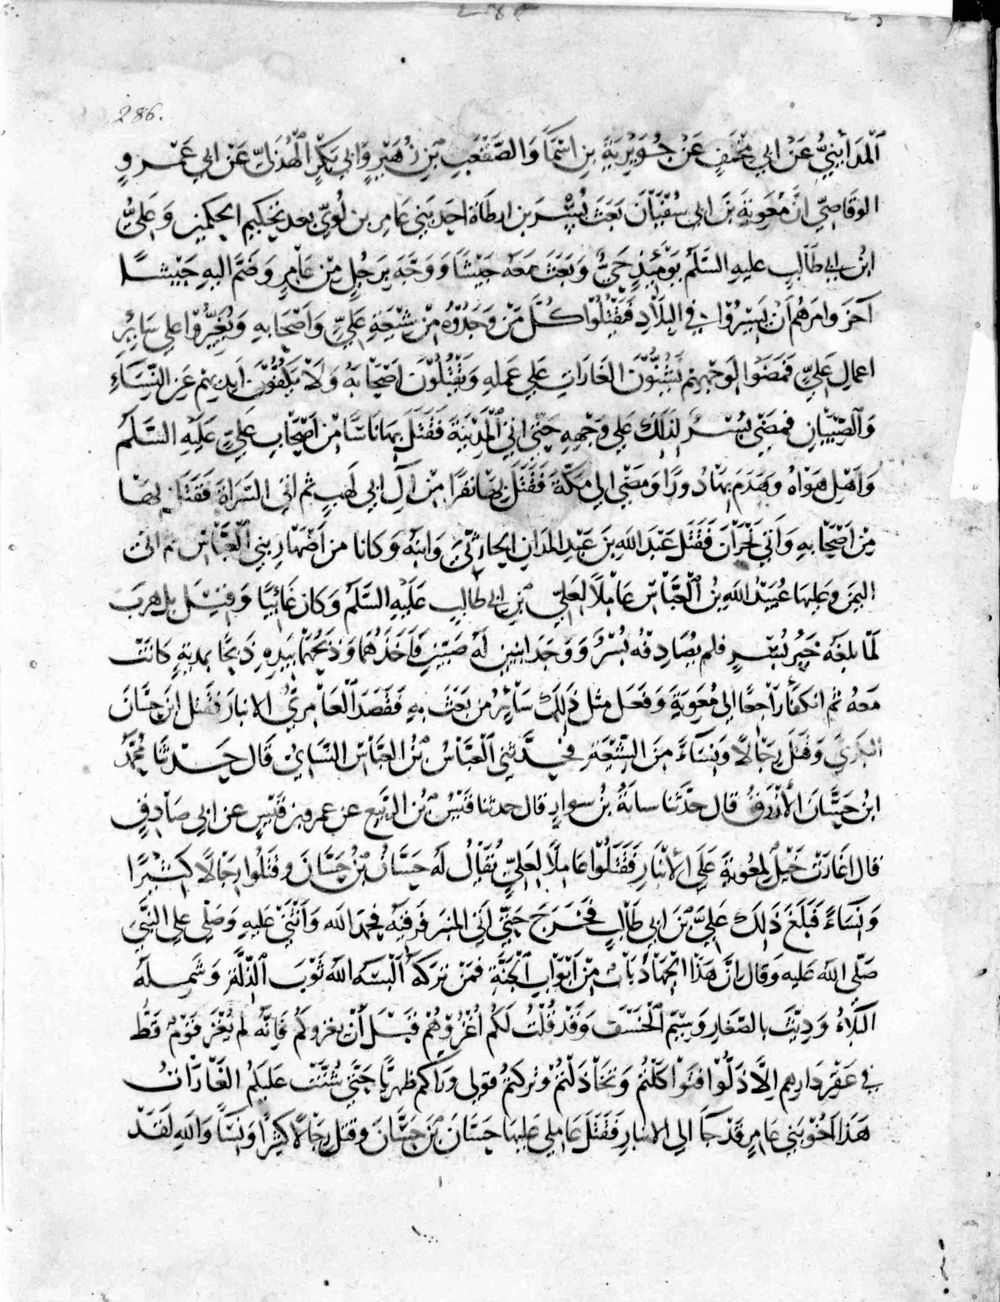 286.
المدائني عن ابي مخنف عن جويرية بن اسما والصقعب بن زهير وابي بكر الهذلي عن ابي عمرو
الوقاصي ان معوية بن ابي سفيان بعث بسر بن ارطاة احد بني عامر بن لؤي بعد تحكيم الحكمين وعلي
ابن ابي طالب عليه السلم يومئذ حي وبعث معه جيشا ووجه برجل من عامر وضم اليه جيشا
آخر وامرهم ان يسيروا في البلاد فقتلوا كل من وجدوه من شيعة علي واصحابه ويغيروا على ساير
اعمال علي فمضوا لوجههم يشنون الغارات على عمله ويقتلون اصحابه ولا يكفون ايديهم عن النساء
والصبيان فمضى بسر لذلك على وجهه حتى اتى المدينة فقتل بها ناسا من اصحاب علي عليه السلم
واهل هواه وهدم بها دورا ومضى الى مكة فقتل بها نفرا من آل ابي لهب ثم اتى السراة فقتل بها
من اصحابه واتى نجران فقتل عبد الله بن عبد المدان الحارثي وابنه وكانا من اصهار بني العباس ثم اتى
اليمن وعليها عبيد الله بن العباس عاملا لعلي بن ابي طالب عليه السلم وكان غائبا وقيل بل هرب
لما بلغه خبر بسر فلم يصادفه بسر ووجد ابنين له صبيين فاخذهما وذبحهما بيده ذبحا بمدية كانت
معه ثم انكفأ راجعا الى معوية وفعل مثل ذلك ساير من بعث به فقصد العامري الى الانبار فقتل ابن حسان
البكري وقتل رجالا ونساء من الشيعة فحدثني العباس بن العباس النسائي قال حدثنا محمد
ابن حسان الازرق قال حدثنا شبابة بن سوار قال حدثنا قيس بن الربيع عن عمرو بن قيس عن ابي صادق
قال اغارت خيل لمعوية على الانبار فقتلوا عاملا لعلي يقال له حسان بن حسان وقتلوا رجالا كثيرا
ونساء فبلغ ذلك علي بن ابي طالب فخرج حتى اتى المنبر فرقيه فحمد الله واثنى عليه وصلى على النبي
صلى الله عليه وقال ان هذا الجهاد باب من ابواب الجنة فمن تركه البسه الله ثوب الذلة وشمله
البلاء وديث بالصغار وسيم الخسف وقد قلت لكم اغزوهم قبل ان يغزوكم فانه لم يغز قوم قط
في عقر دارهم الا ذلوا فتواكلتم وتخاذلتم وتركتم قولي وراكم ظهريا حتى شنت عليكم الغارات
هذا اخو بني عامر قد جا الى الانبار فقتل عاملي عليها حسان بن حسان وقتل رجالا كثيرا ونسا والله لقد